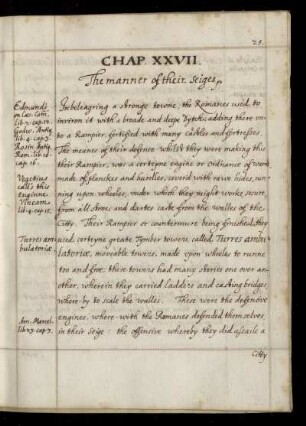 25.
CHAP XXVII.
The manner of their Seiges.
Edmunds
on Caes: Com.
lib. 7. cap. 12.
Godw. Antiq.
lib. 4. cap. 2.
Rosin Antiq.
Rom. lib. 10.
cap. 16.
Vegetius
calls this
engine
Vineam
lib. 4. cap. 15.
Turres am-
bulatoriæ
Am. Marcel.
lib. 23. cap. 3.
In beleagring a stronge towne, the Romanes used to
inviron it with a broade and deepe Dytche, adding there un-
to a Rampier, fortified with many castles and fortresses.
The meanes of their defence whilst they were making this
their Rampier, was a certeyne engine or Ordinance of wood,
made of planckes and hurdles, coverd with rawe hides, run-
ning upon wheeles, under which they might worke secure
from all stones and dartes caste from the walles of the
Citty. Their Rampier or countermure being finished, they
used certeyne greate Tymber towers, called, Turres ambu-
latoriæ, moveable townes, made upon wheels to runne
too and froe: these towers had many stories one over ano-
ther, wherein they carried ladders and casting bridges,
whereby to scale the walles. These were the defensive
engines, where-with the Romanes defended themselves,
in their seige: the offensive whereby they did assaile a
Citty